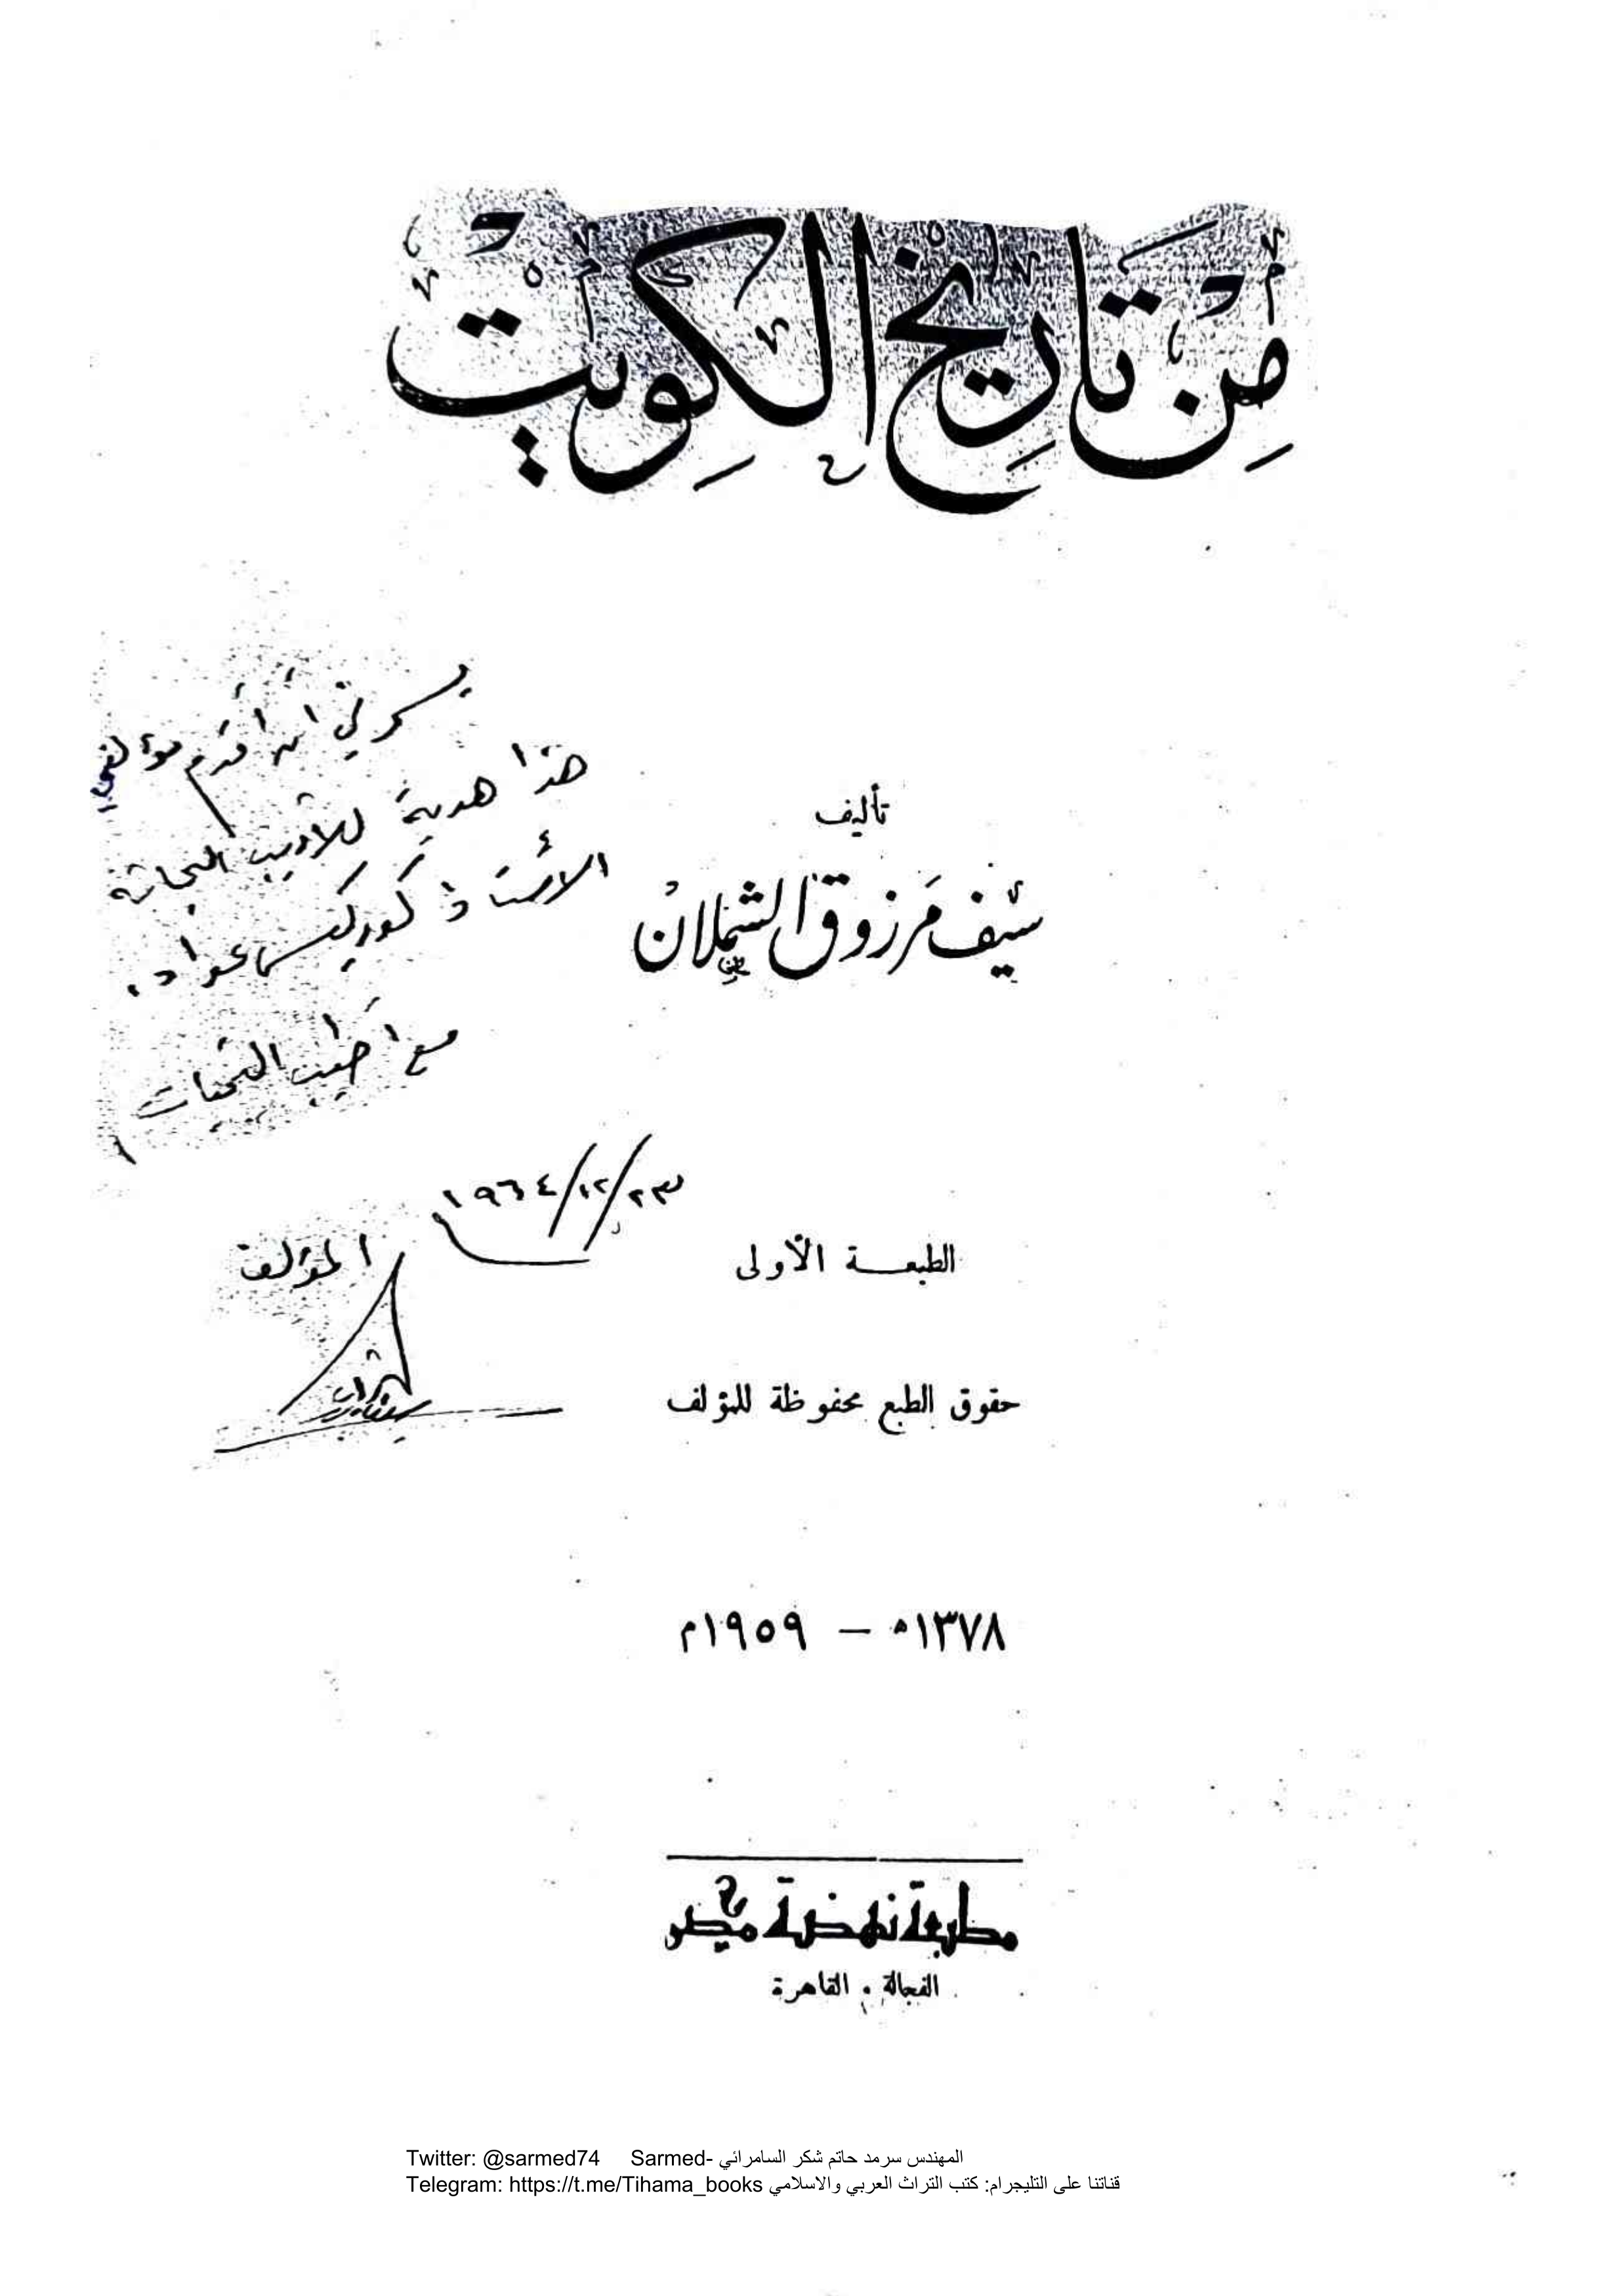 من تاريخ الكويت
تأليف
سيف مرزوق الشملان
يسرني أن أقدم مؤلفي
هذا هدية للأديب البحاثة
الأستاذ كوركيس عواد،
مع أطيب التحيات
٢٣/١٢/١٩٦٤
المؤلف
الطبعة الأولى
حقوق الطبع محفوظة للمؤلف
١٣٧٨ه – ١٩٥٩م
مطبعة نهضة مصر
الفجالة . القاهرة
Twitter: @sarmed74 Sarmed- المهندس سرمد حاتم شكر السامرائي
Telegram: https://t.me/Tihama_books قناتنا على التليجرام: كتب التراث العربي والاسلامي